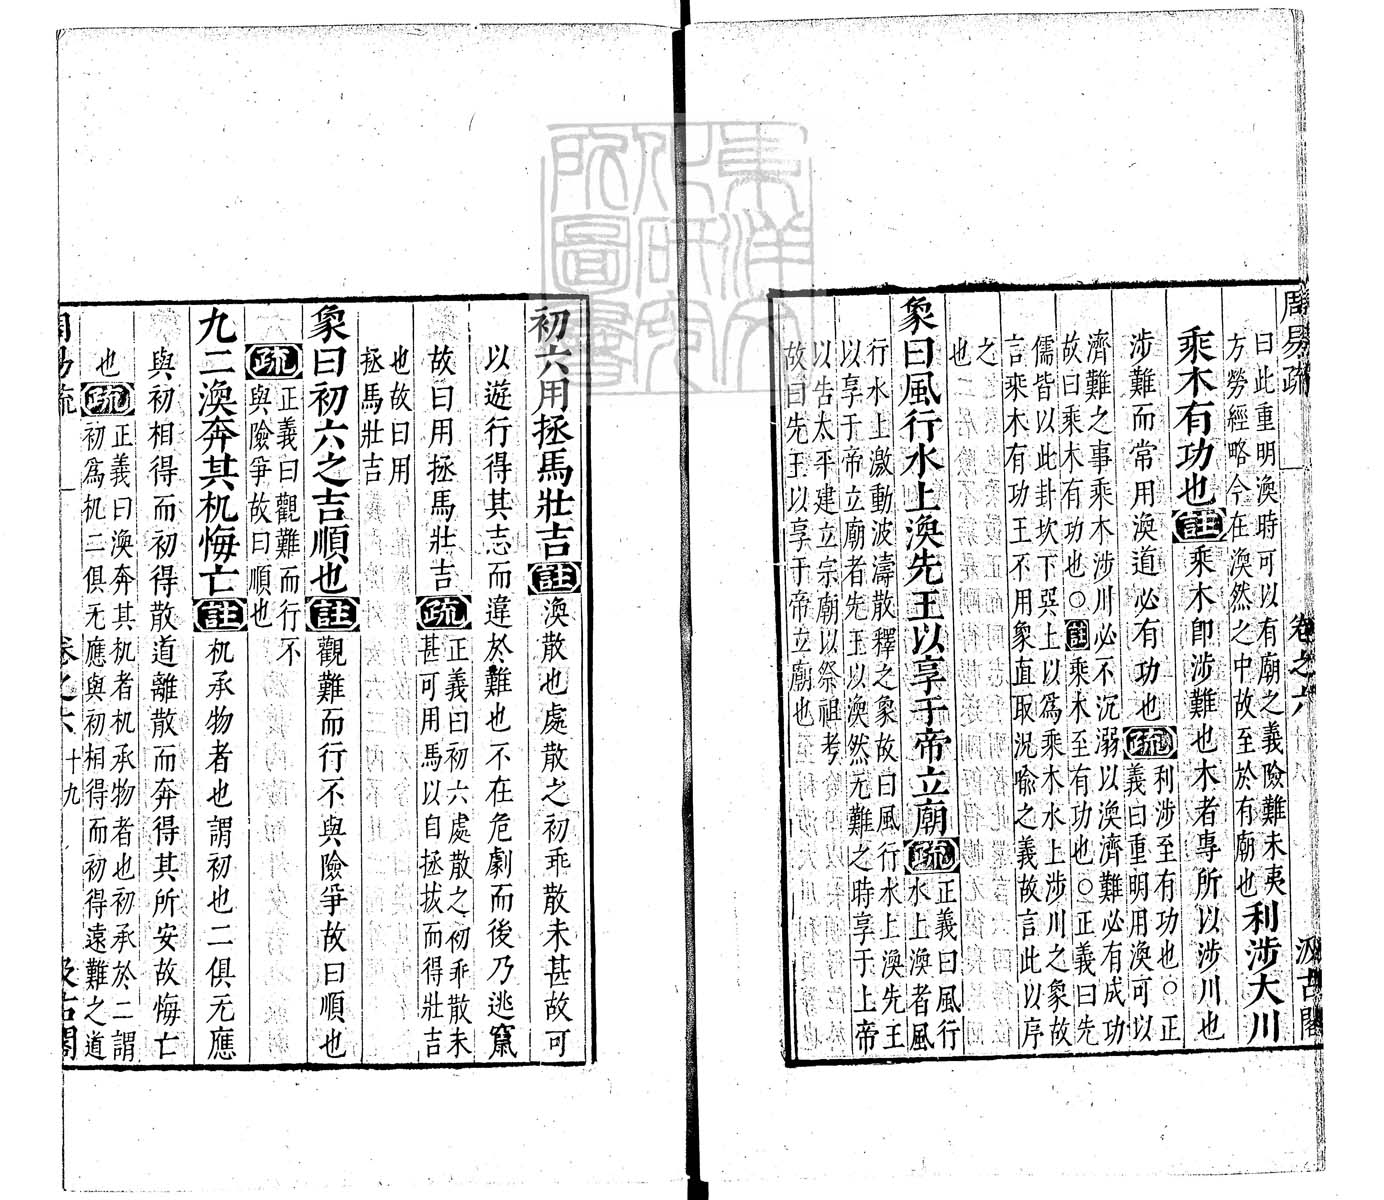 周易疏
卷之六
汲古閣
曰此重明渙時可以有廟之義險難未夷
方勞經略今在渙然之中故至於有廟也
利涉大川
乘木有功也註乘木卽涉難也木者專所以涉川也
涉難而常用渙道必有功也疏
利涉至有功也○正
義曰重明用渙可以
濟難之事乘木涉川必不沉溺以渙濟難必有成功
故曰乘木有功也○註乘木至有功也○正義曰先
儒皆以此卦坎下巽上以爲乘木水上涉川之象故
言乘木有功王不用象直取況喻之義故言此以序
之
也
象曰風行水上渙先王以享于帝立廟疏
正義曰風行
水上渙者風
行水上激動波濤散釋之象故曰風行水上渙先王
以享于帝立廟者先王以渙然无難之時享于上帝
以告太平建立宗廟以祭祖考
故曰先王以享于帝立廟也
初六用拯馬壯吉註渙散也處散之初乖散未甚故可
以遊行得其志而違於難也不在危劇而後乃逃竄
故曰用拯馬壯吉疏
正義曰初六處散之初乖散未
甚可用馬以自拯拔而得壯吉
也故曰用
拯馬壯吉
象曰初六之吉順也註觀難而行不與險爭故曰順也
疏
正義曰觀難而行不
與險爭故曰順也
九二渙奔其机悔亡註机承物者也謂初也二俱无應
與初相得而初得散道離散而奔得其所安故悔亡
也疏
正義曰渙奔其机者机承物者也初承於二謂
初爲机二俱无應與初相得而初得遠難之道
周易疏
卷之六
十九
汲古閣
東洋文
化研究
所圖書